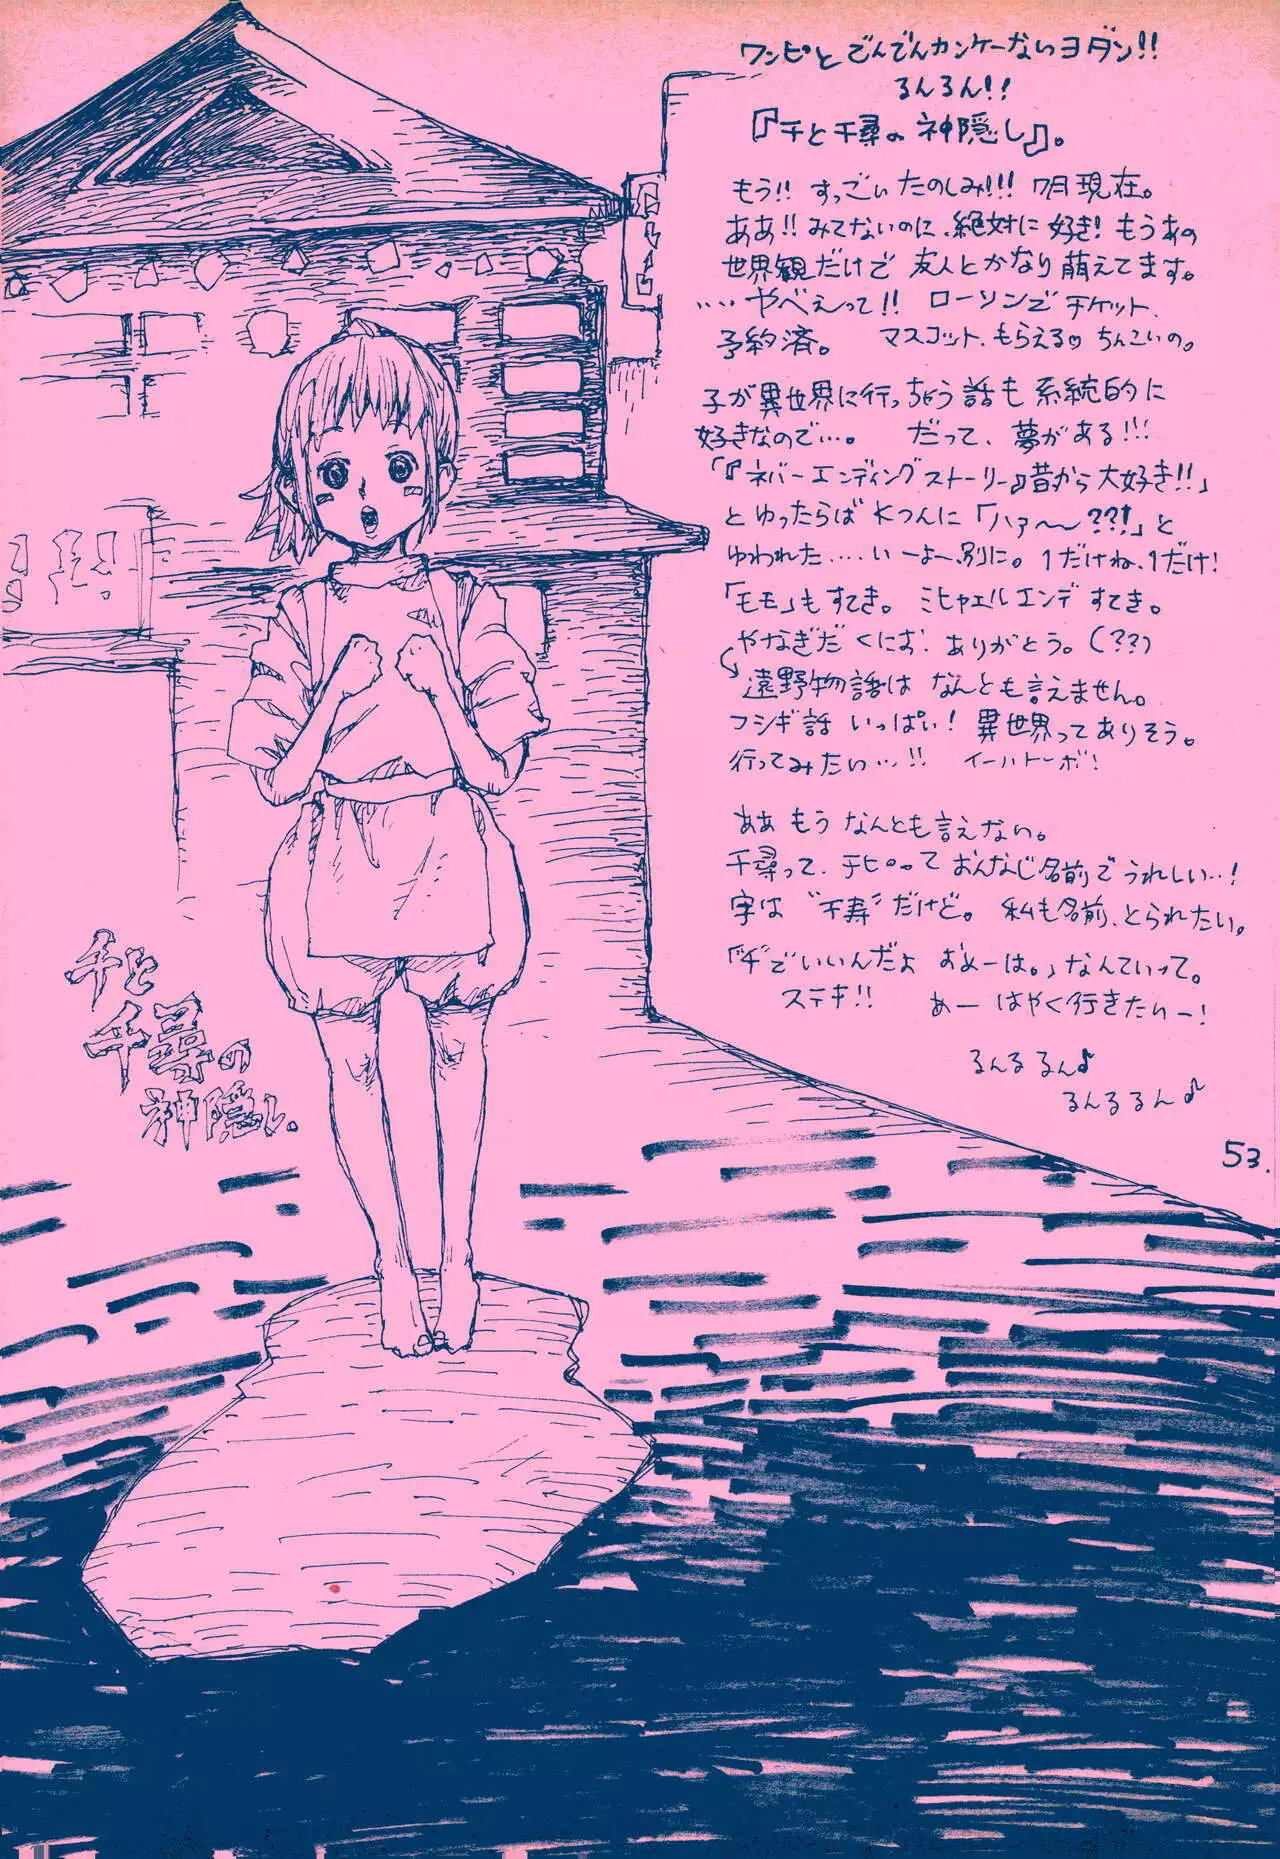 ワンピと でんでんカンケーないヨダン!!
るんるん!!
『千と千尋の神隠し』。
もう!! すっごいたのしみ!!! 7月現在。
ああ!! みてないのに、絶対に好き! もうあの
世界観だけで 友人とかなり萌えてます。
‥‥やべぇって!! ローソンでチケット、
予約済。 マスコット、もらえる♡ ちんこいの。
子が異世界に行っちゃう話も系統的に
好きなので…。 だって、夢がある!!!
「『ネバーエンディングストーリー』昔から大好き!!」
とゆったらば Kつんに「ハァ〜〜??!」と
ゆわれた‥‥いーよー、別に。1だけね、1だけ!
「モモ」もすてき。ミヒャエルエンデすてき。
やなぎだくにお、ありがとう。(??)
遠野物語は なんとも言えません。
フシギ話 いっぱい! 異世界ってありそう。
行ってみたい…!! イーハトーボ!
ああ もう なんとも言えない。
千尋って、チヒロって おんなじ名前でうれしい‥!
字は"千寿"だけど。 私も名前、とられたい。
「"千"でいいんだよ おめーは。」なんていって。
ステキ!! あー はやく行きたいー!
るんるるん♪
るんるるん♪
53.
千と
千尋の
神隠し